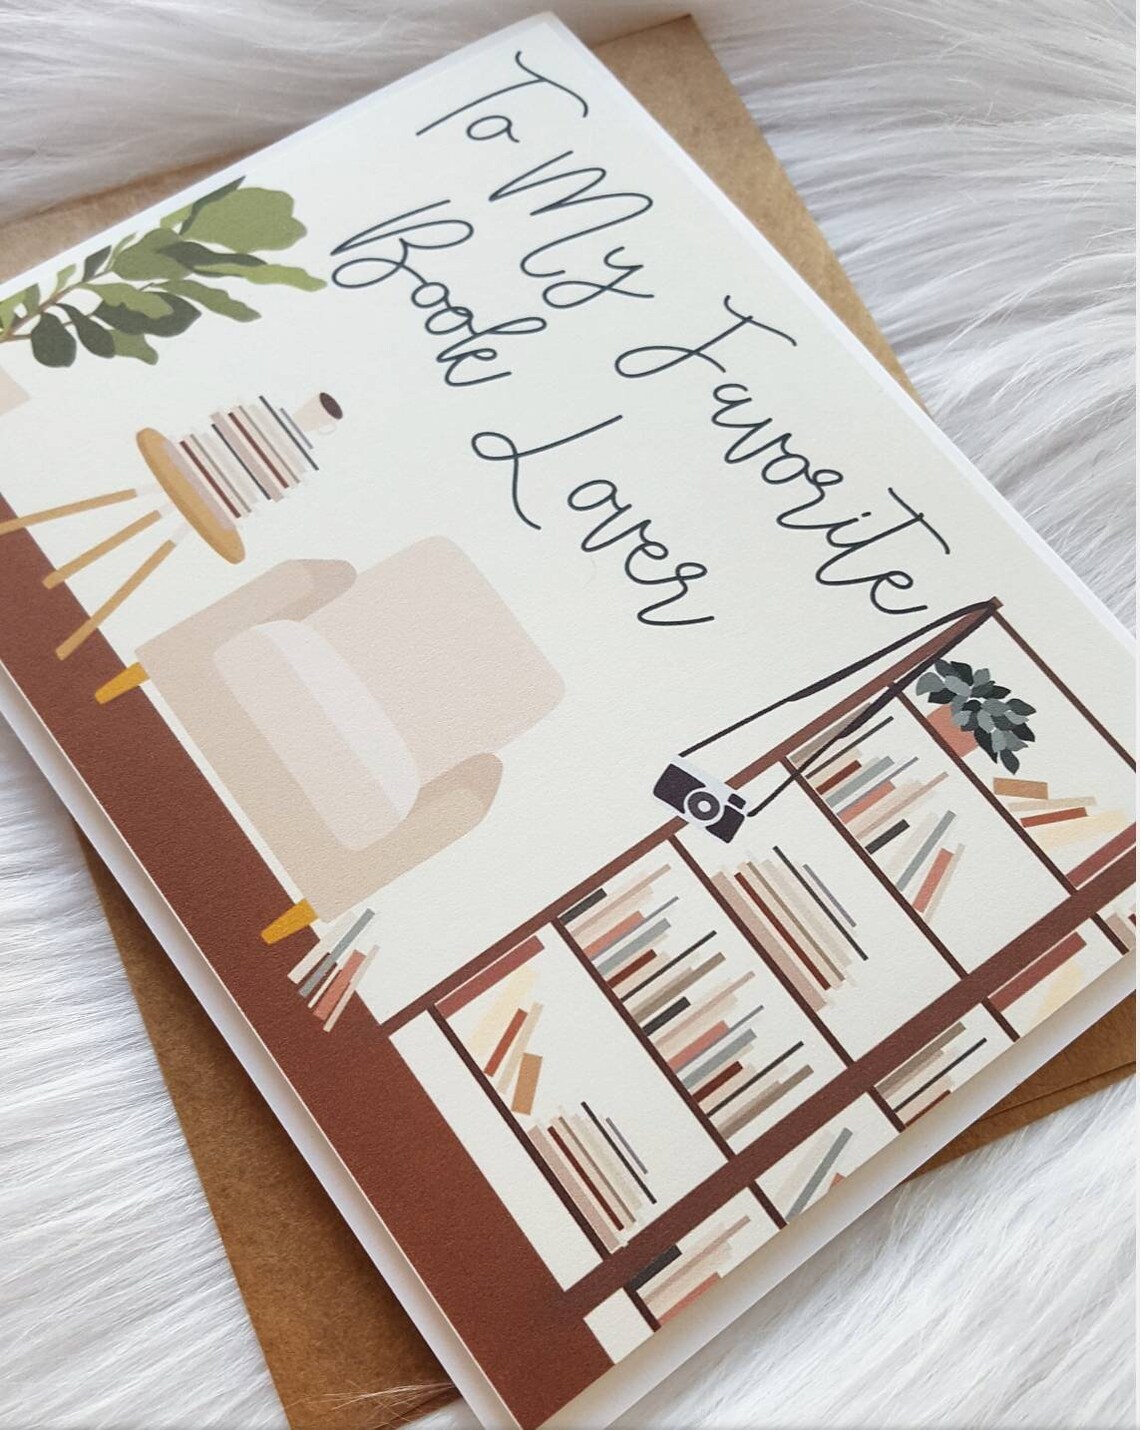 To My Favorite
Book Lover